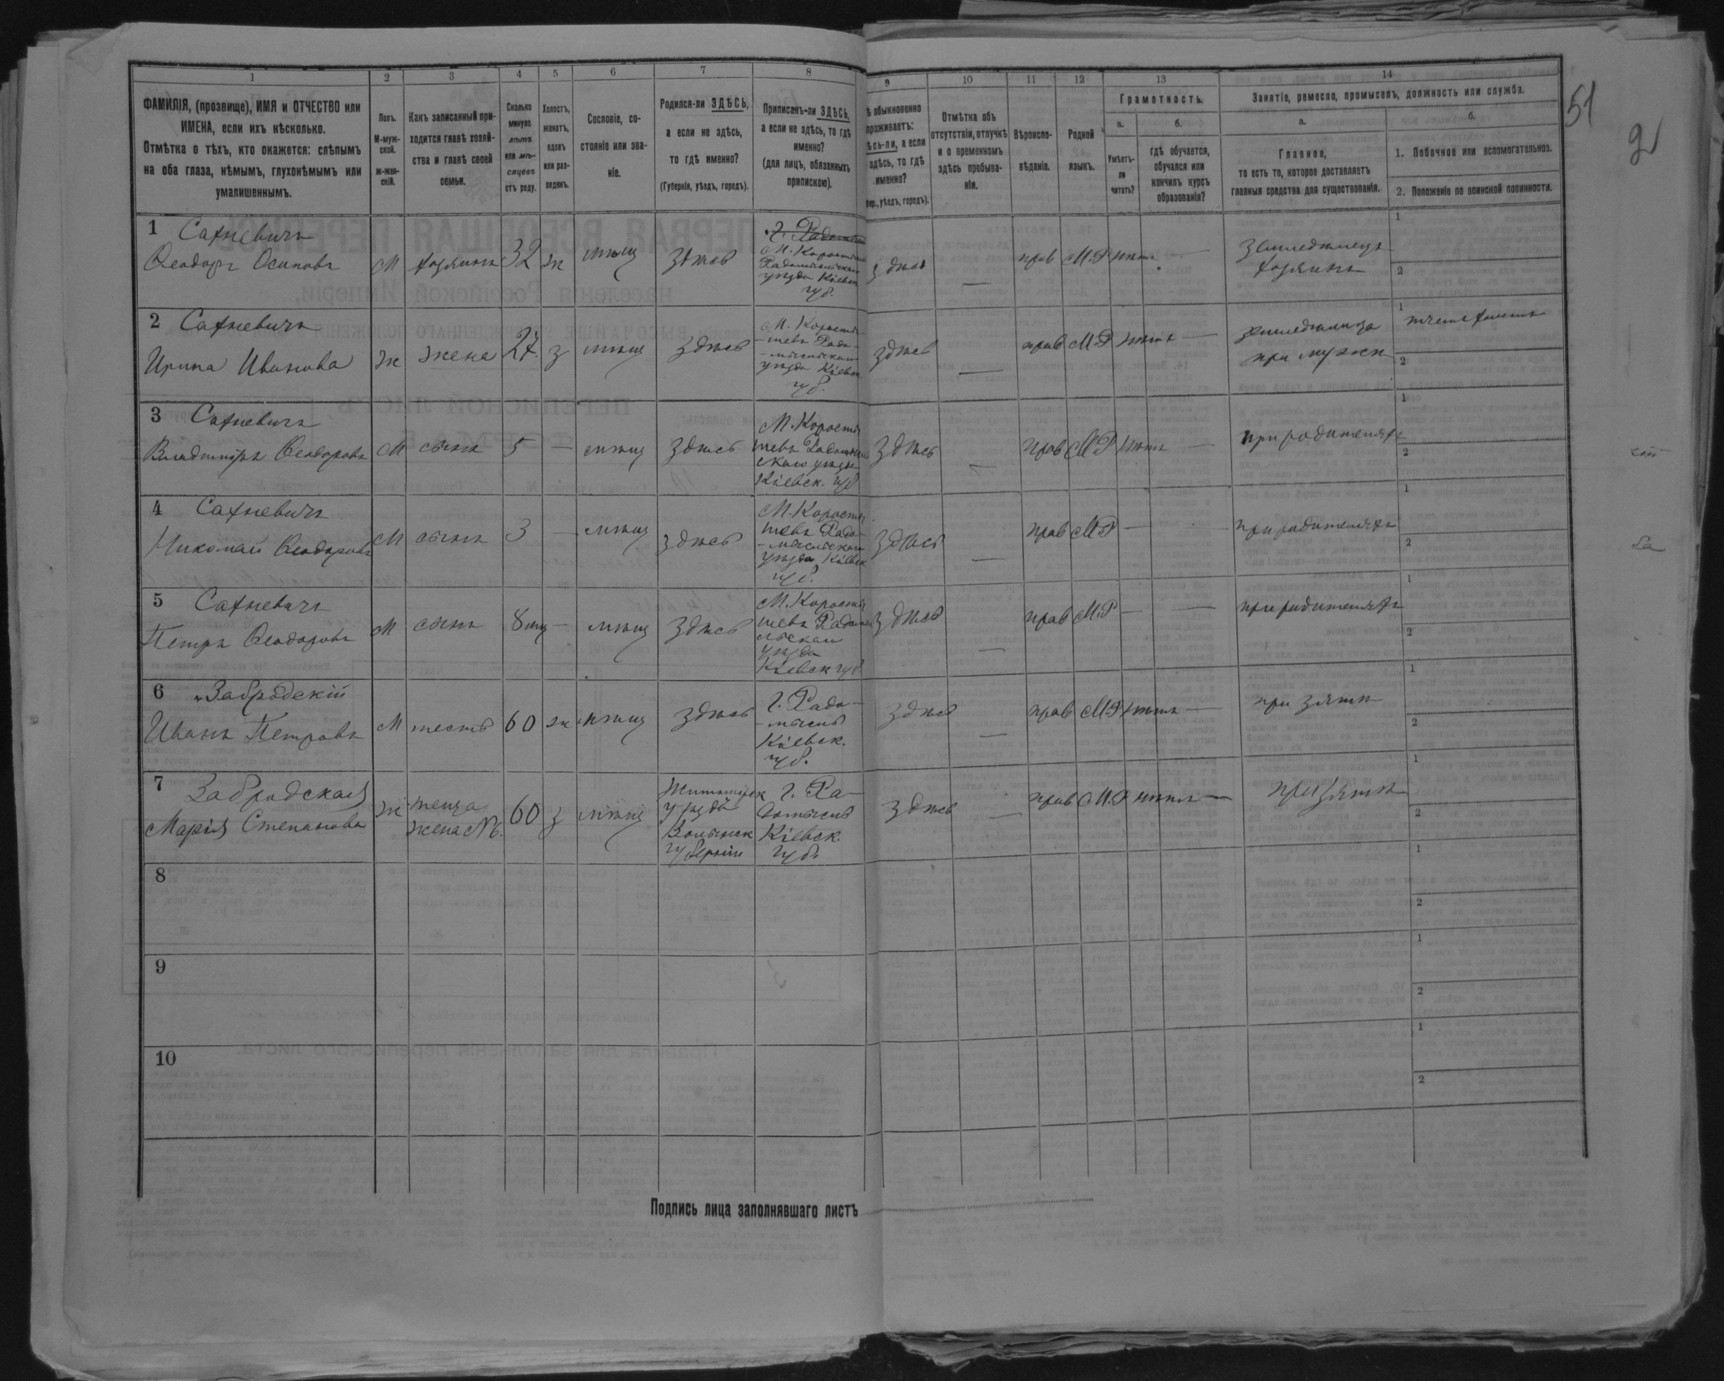 51
2
1 2 3 4 5 6 7 8 9 10 11 12 13 14
ФАМИЛІЯ, (прозвище), ИМЯ и ОТЧЕСТВО или
ИМЕНА, если ихъ нѣсколько.
Отмѣтка о тѣхъ, кто окажется: слѣпымъ
на оба глаза, нѣмымъ, глухонѣмымъ или
умалишеннымъ.
Полъ.
М-муж-
ской.
Ж-жен-
скій.
Какъ записанный при-
ходится главѣ хозяй-
ства и главѣ своей
семьи.
Сколько
минуло
лѣтъ
или мѣ-
сяцевъ
отъ роду.
Холостъ,
женатъ,
вдовъ
или раз-
веденъ.
Сословіе, со-
стояніе или зва-
ніе.
Родился-ли ЗДѢСЬ,
а если не здѣсь,
то гдѣ именно?
(Губернія, уѣздъ, городъ).
Приписанъ-ли ЗДѢСЬ,
а если не здѣсь, то гдѣ
именно?
(для лицъ, обязанныхъ
припискою).
обыкновенно
проживаетъ:
здѣсь-ли, а если
здѣсь, то гдѣ
именно?
уѣздъ, городъ).
Отмѣтка объ
отсутствіи, отлучкѣ
и о временномъ
здѣсь пребыва-
ніи.
Вѣроиспо-
вѣданіе.
Родной
языкъ.
Грамотность.
а.
Умѣетъ-
ли
читать?
б.
гдѣ обучается,
обучался или
кончилъ курсъ
образованія?
Занятіе, ремесло, промыселъ, должность или служба.
а.
Главное,
то есть то, которое доставляетъ
главныя средства для существованія.
б.
1. Побочное или вспомогательное.
2. Положеніе по воинской повинности.
1 Сахневичъ
Ѳеодоръ Осиповъ М хозяинъ 32 ж мѣщ здѣсь
г. Радомысль
М. Коростышевъ
Радомысльскаго
уѣзда Кіевск
губ.
здѣсь — прав М.Р нѣтъ —
земледѣлецъ
хозяинъ
1
2
2 Сахневичъ
Ирина Иванова ж жена 27 з мѣщ здѣсь
М. Корости-
шевъ Радо-
мысльскаго
уѣзда Кіевск
губ.
здѣсь — прав М.Р нѣтъ —
земледѣлица
при мужѣ
1
2
3 Сахневичъ
Владиміръ Ѳеодоровъ М сынъ 5 — мѣщ здѣсь
М. Корости
шевъ Радомысль
скаго уѣзда
Кіевск. губ
здѣсь — прав М.Р нѣтъ —
при родителяхъ
1
2
4 Сахневичъ
Николай Ѳеодоровъ М сынъ 3 — мѣщ здѣсь
М. Корости
шевъ Радо-
мысльскаго
уѣзда Кіевск
губ.
здѣсь — прав М.Р — —
при родителяхъ
1
2
5 Сахневичъ
Петръ Ѳеодоровъ М сынъ 8 мц — мѣщ здѣсь
М. Корости
шевъ Радомы
сльскаго
уѣзда
Кіевск губ
здѣсь — прав М.Р — —
при родителяхъ
1
2
6 Забродскій
Иванъ Петровъ М тесть 60 ж мѣщ здѣсь
г. Радо-
мысль
Кіевск.
губ.
здѣсь — прав М.Р нѣтъ —
при зятѣ
1
2
7 Забродская
Марія Степанова ж теща
жена №6. 60 з мѣщ
Житомирск
уѣзда
Волынск
губерніи
г. Ра-
домысль
Кіевск
губ
здѣсь — прав М.Р нѣтъ —
при зятѣ
1
2
8
1
2
9
1
2
10
1
2
Подпись лица заполнявшаго листъ